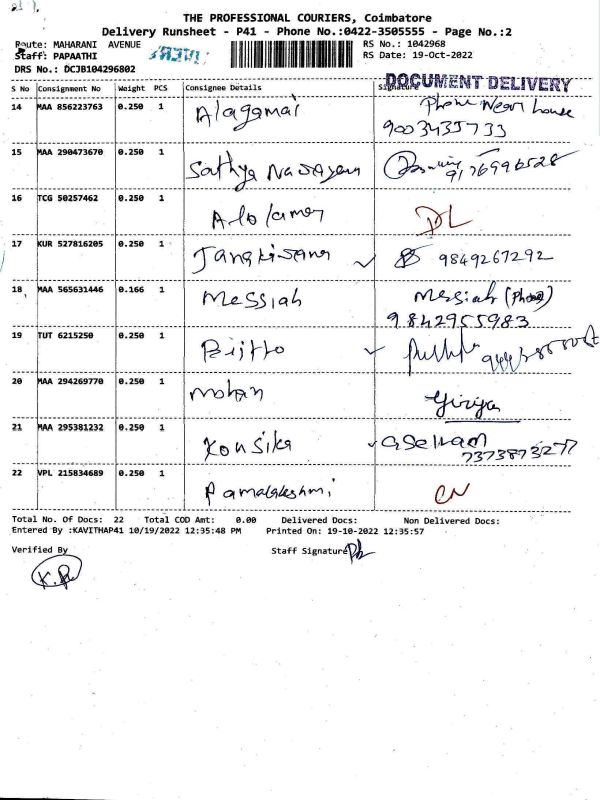 THE PROFESSIONAL COURIERS, Coimbatore
Delivery Runsheet - P41 - Phone No.:0422-3505555 - Page No.:2
Route: MAHARANI AVENUE RS No.: 1042968
Staff: PAPAATHI RS Date: 19-Oct-2022
DRS No.: DCJB104296802
DOCUMENT DELIVERY
S No Consignment No Weight PCS Consignee Details Signature
14 MAA 856223763 0.250 1 Alagamai Phone Near house
9003435733
15 MAA 290473670 0.250 1 Sathya Narayan 9176996528
16 TCG 50257462 0.250 1 DL
17 KUR 527816205 0.250 1 9849267292
18 MAA 565631446 0.166 1 Messiah Messiah (Phone)
9842955983
19 TUT 6215250 0.250 1 Bijtto
20 MAA 294269770 0.250 1 Mohan
21 MAA 295381232 0.250 1 Kousika G Selvam
7373873277
22 VPL 215834689 0.250 1 Ramalakshmi CN
Total No. Of Docs: 22 Total COD Amt: 0.00 Delivered Docs: Non Delivered Docs:
Entered By :KAVITHAP41 10/19/2022 12:35:48 PM Printed On: 19-10-2022 12:35:57
Verified By Staff Signature